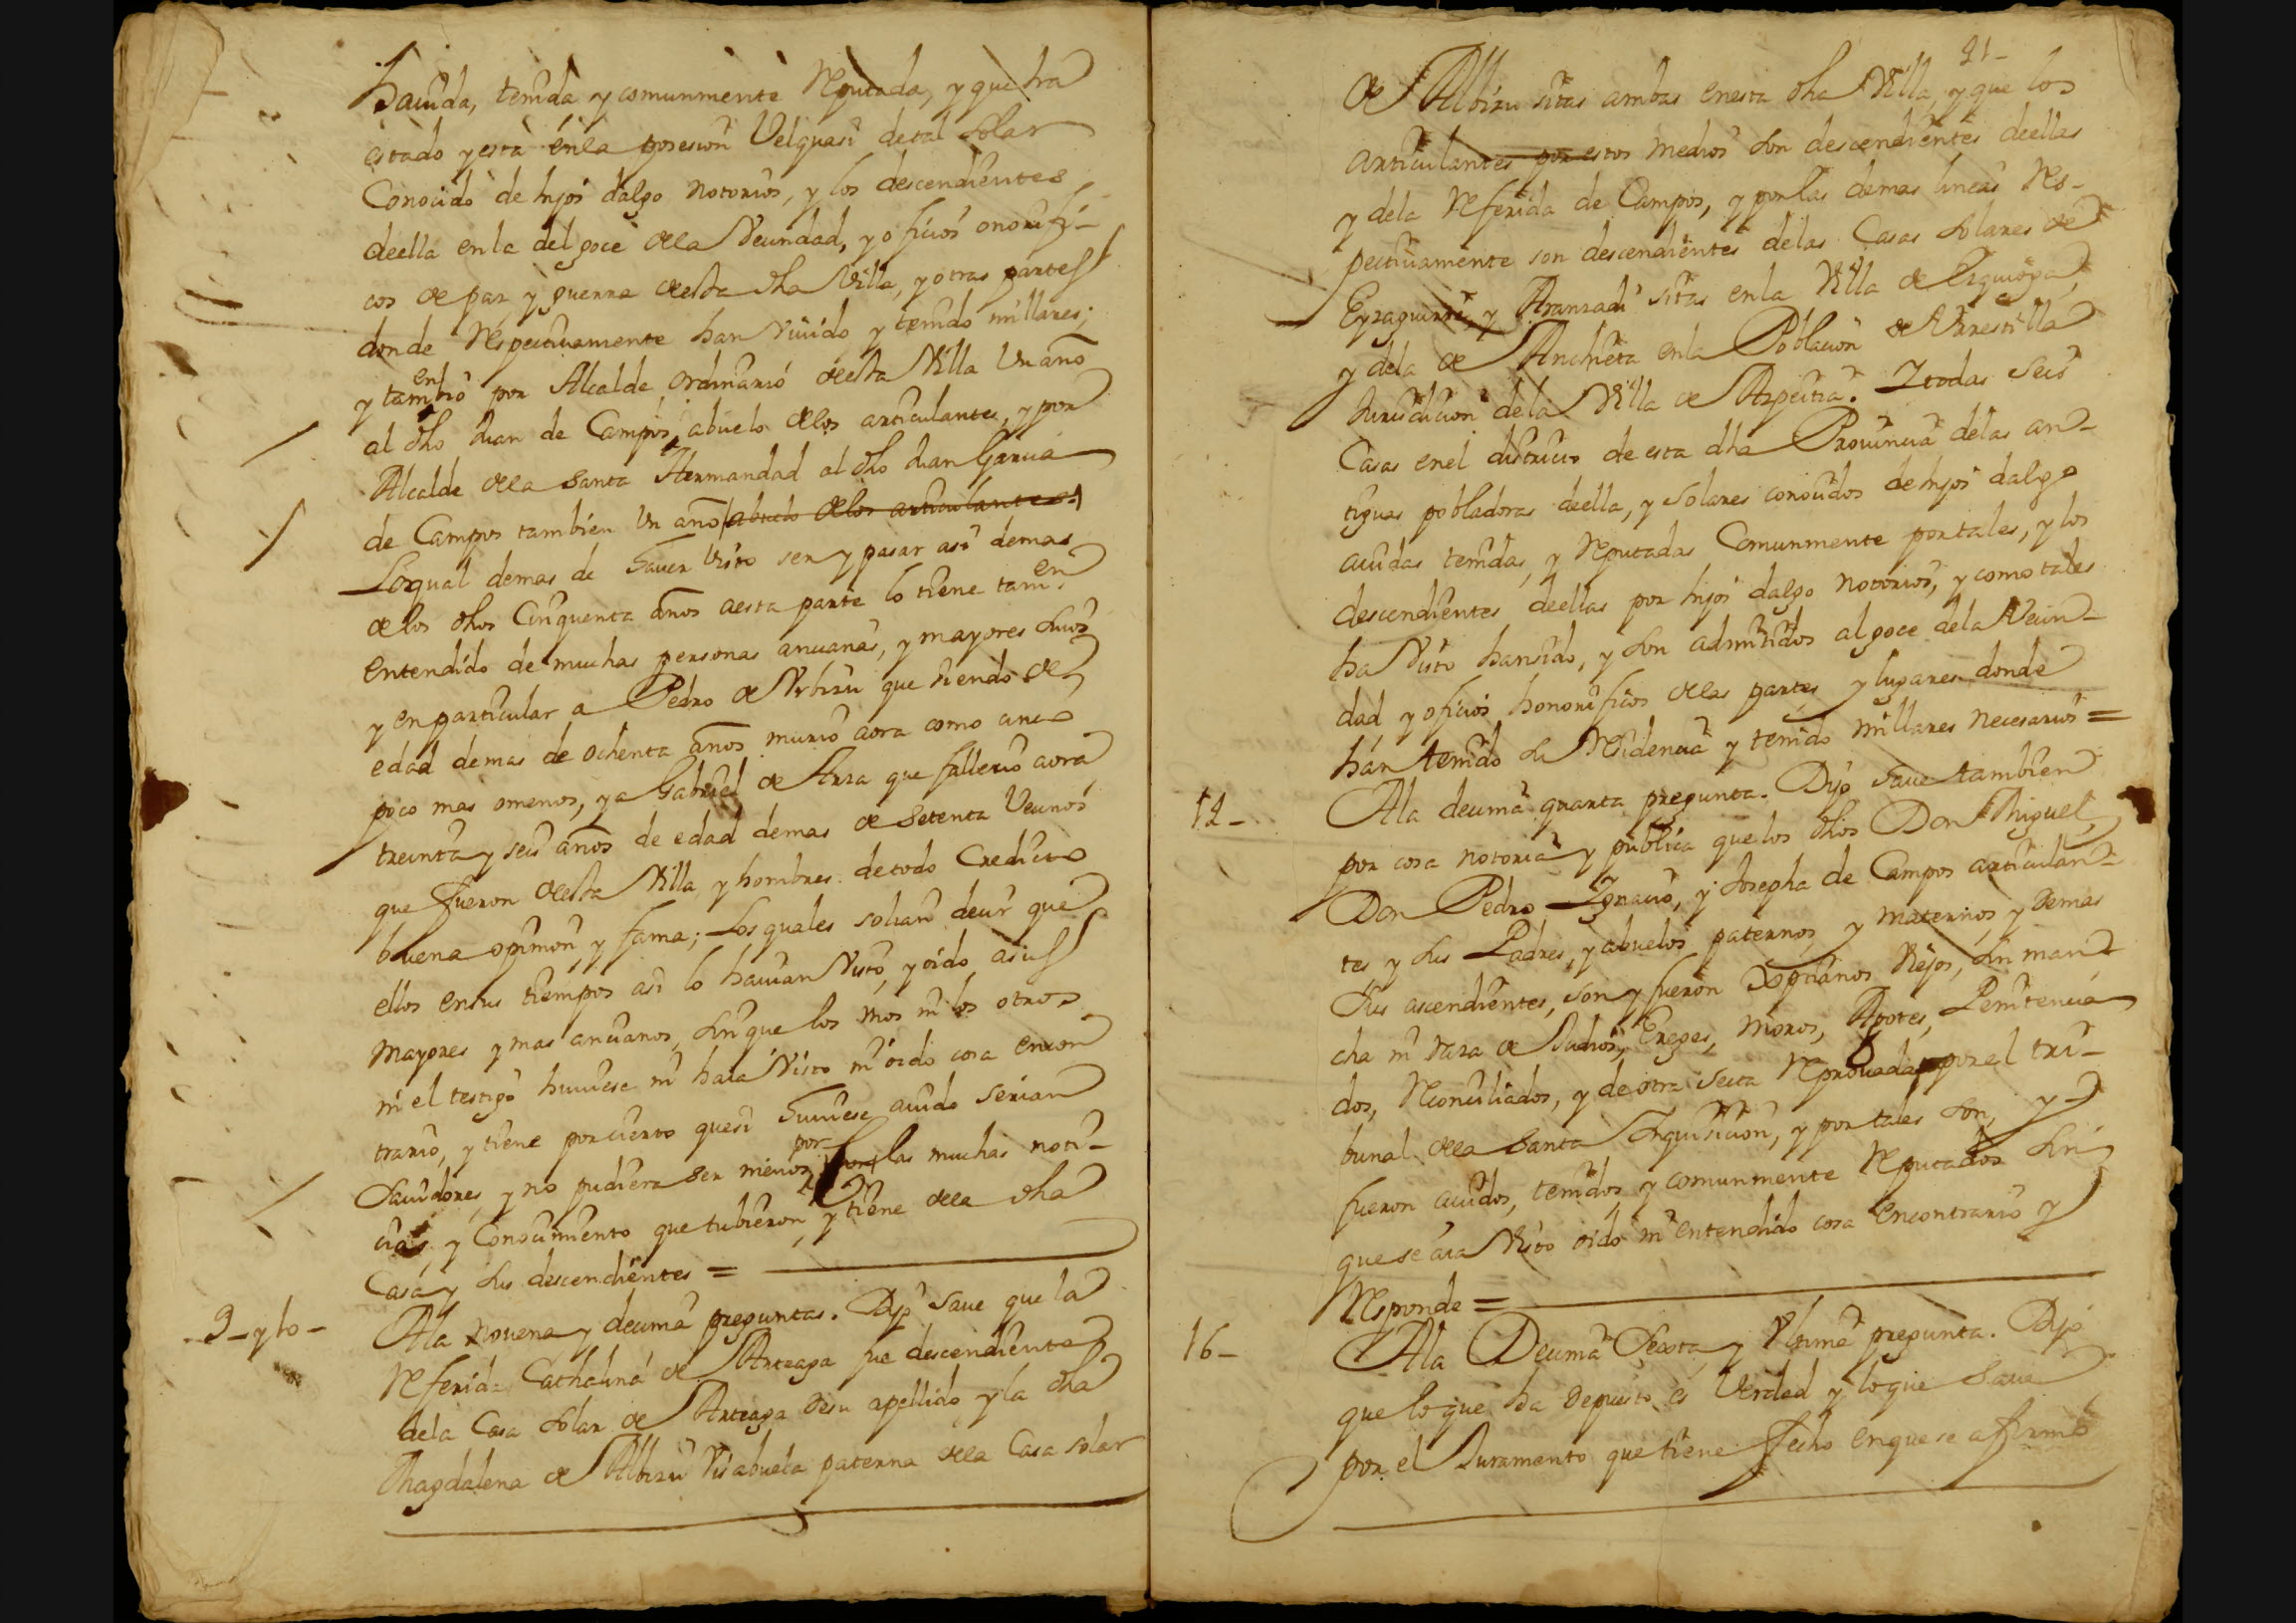 hauida, tenida y comunmente Reputada, y que ha
estado y está en la posesion Velquasi de tal solar
Conocido de hijos dalgo notorios, y los descendientes
deella en la del goce de la Vecindad, y oficios onorifi-
cos de paz y guerra desta dha Villa, y otras partes
donde Respectiuamente han viuido y tenido millares;
y tambio en por Alcalde ordinario desta Villa Un año
al dho Juan de Campos, abuelo de los articulantes, y por
Alcalde de la Santa Hermandad al dho Juan Garcia
de Campos tambien Un año (abuelo de los articulantes.)
Lo qual demas de hauer visto ser y pasar asi demas
de los dhos Cinquenta años aesta parte lo tiene tam en
entendido de muchas personas ancianas, y mayores suios
y en particular a Pedro de Urbizu que siendo de
edad demas de ochenta años murio aora como cinco
poco mas omenos, y a Gabriel de Arza que fallecio aora
treinta y seis años de edad demas de setenta Vecinos
que fueron desta Villa y hombres de todo Credito
buena opinion y fama; Los quales solian decir que
ellos en sus tiempos asi lo hauian visto, y oido a sus
mayores y mas ancianos, sin que los unos ni los otros
ni el testigo huuiese ni haia visto ni oido cosa encon
trario, y tiene por cierto que si huuiese auido serian
Sauidores, y no pudiera ser menos por las muchas noti-
cias y Conocimiento que tubieron, y tiene de la dha
Casa y sus descendientes =
9- y 10- A la novena y decima preguntas. Dijo saue que la
Referida Cathalina de Arteaga fue descendiente
dela Casa solar de Arteaga de su apellido y la dha
Magdalena de Albizu Visabuela paterna de la Casa solar
21-
de Albizu sitas ambas en esta dha Villa, y que los
articulantes por estos medios son descendientes deellas
y dela Referida de Campos, y por las demas lineas Res-
pectiuamente son descendientes delas Casas solares de
Eyzaguirre, y Aranzadi sitas en la Villa de Ezquioga,
y dela de Anchieta en la Poblacion de Urrestilla
Jurisdicion de la Villa de Azpeitia. Y todas seis
Casas en el distrito de esta dha Prouincia delas an-
tiguas pobladoras deella, y Solares conocidos de hijos dalgo
auidas tenidas, y Reputadas Comunmente por tales, y los
descendientes deellas por hijos dalgo notorios, y como tales
ha visto han sido, y son admitidos al goce dela Vecin-
dad, y oficios honorificos delas partes y lugares donde
han tenido su Residencia y tenido millares necesarios =
14- A la decima quarta pregunta. Dijo saue tambien
por cosa notoria y publica que los dhos Don Miguel,
Don Pedro Ignacio, y Josepha de Campos articulan-
tes y sus Padres, y abuelos paternos y maternos, y demas
sus ascendientes, son y fueron Xptianos Viejos, sin man-
cha ni raza de Judios, Ereges, Moros, Agotes, Penitencia
dos, Reconciliados, y de otra secta Reprouada por el tri-
bunal de la Santa Inquisicion, y por tales son, y
fueron auidos, tenidos y comunmente Reputados sin
que se aia visto oido ni entendido cosa encontrario y
Responde =
16- A la Decima Sexta y Vltima pregunta. Dijo
que lo que ha depuesto es Verdad y lo que saue
por el Juramento que tiene fecho en que se afirmó